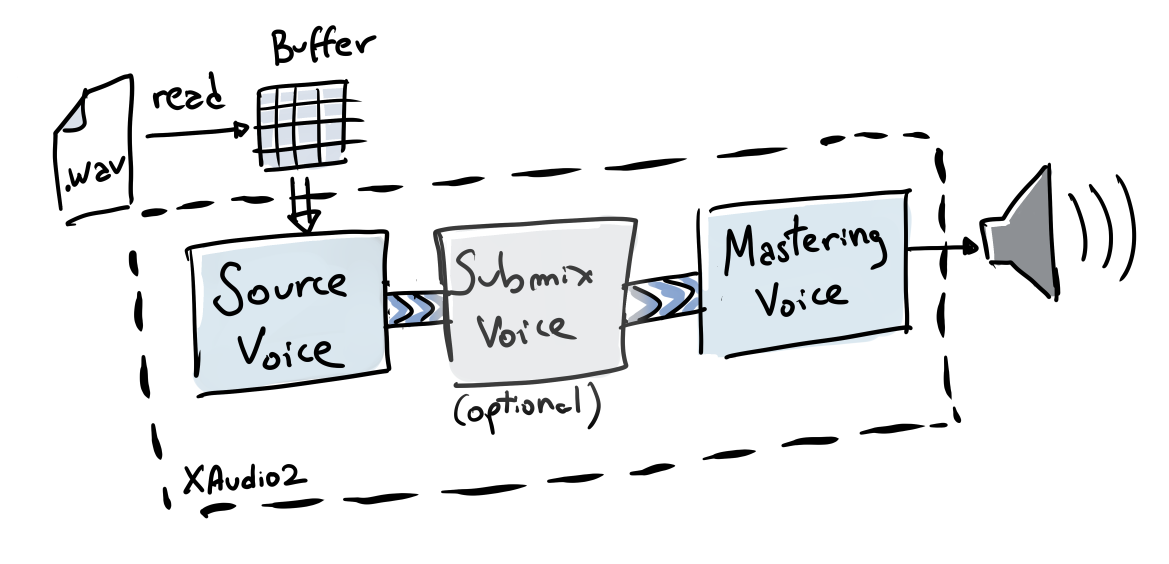 Buffer
read
.wav
Source
Voice
Submix
Voice
(optional)
Mastering
Voice
XAudio2